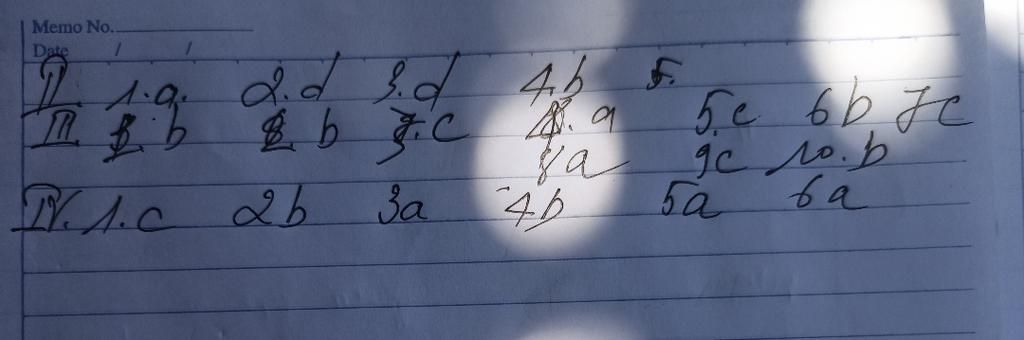 Memo No.
Date / /
II. 1.a. 2.d 3.d 4.b 5.
III 1. b 2 b 3.c 4.a 5.c 6b 7c
8a 9c 10.b
IV. 1.c 2b 3a 4b 5a 6a